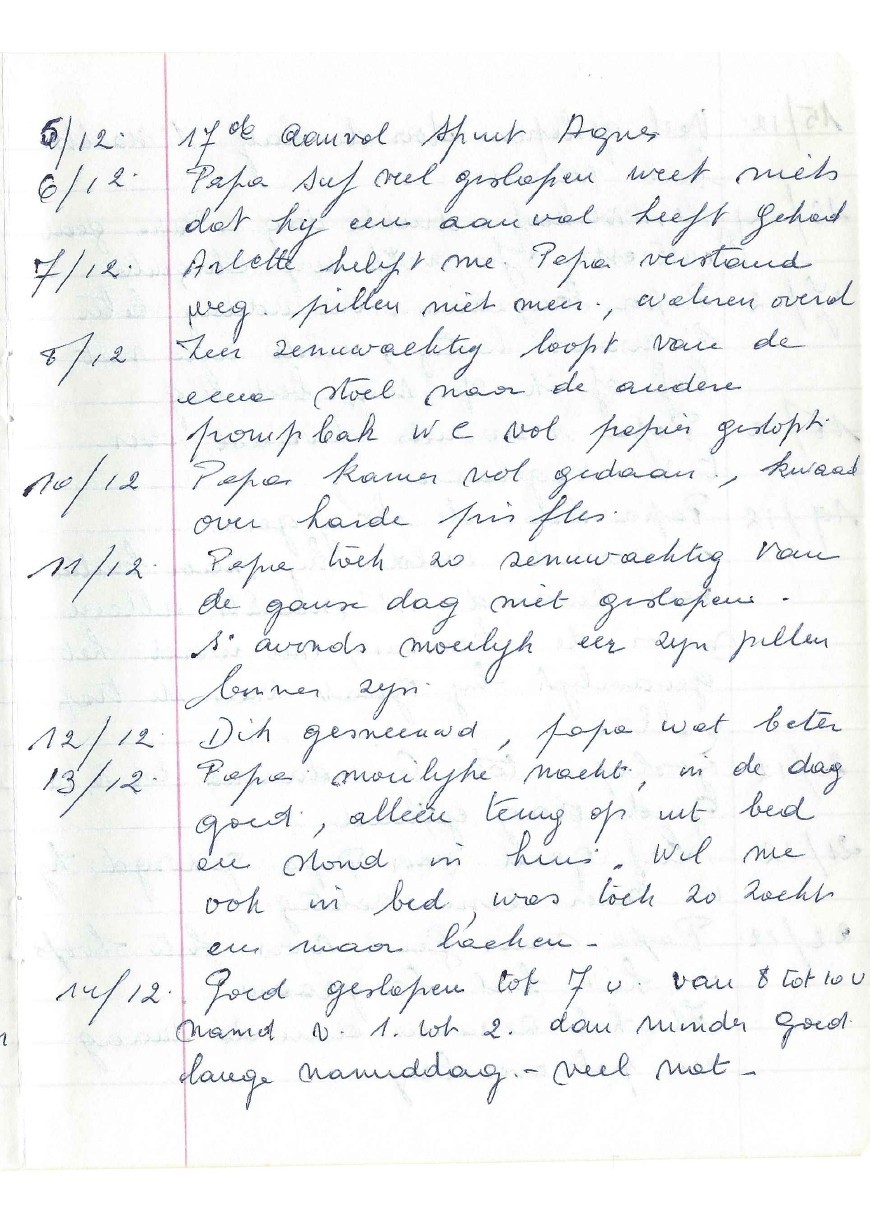 5/12. 17de aanval spuit Agnes
6/12. Papa suf veel geslapen weet niets
dat hij een aanval heeft gehad
7/12. Arlette helpt me. Papa verstand
weg. pillen niet meer.,
8/12 Zeer zenuwachtig loopt van de
eene stoel naar de andere
pompbak WC vol papier gestopt.
10/12 Papa kamer vol gedaan, kwaad
over harde pis fles.
11/12. Papa toch zo zenuwachtig van
de ganse dag niet geslapen.
S' avonds moeilijk eer zijn pillen
binnen zijn.
12/12. Dik gesneeuwd, papa wat beter
13/12. Papa moeilijke nacht, in de dag
goed., alleen terug op uit bed
en stond in huis. Wil me
ook in bed, was toch zo zacht
en maar lachen -
14/12. Goed geslapen tot 7 u. van 8 tot 10 u
namid v. 1. tot 2. dan minder goed.
lange namiddag. - veel nat -